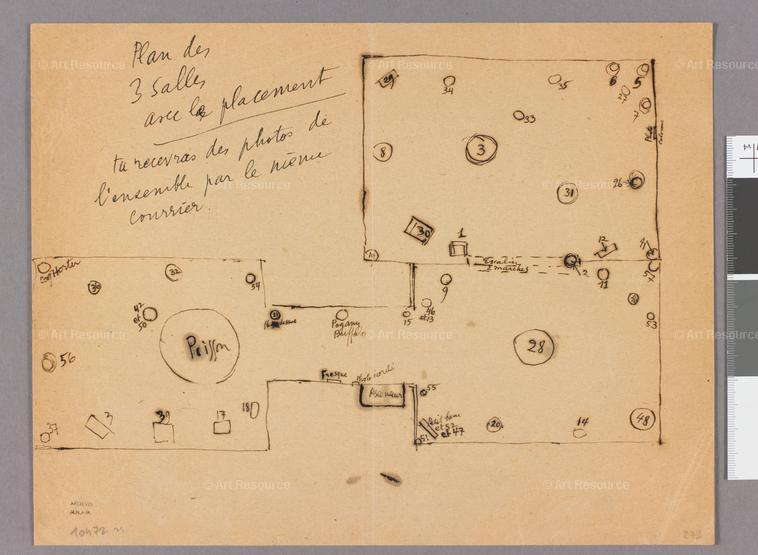 Plan des
3 Salles
avec le placement
tu recevras des photos de
l'ensemble par le même
courrier.
29
34
35
6
5
33
7
8
3
31
26
30
1
12
41
Escalier
2 marches
2
11
Horter
32
54
9
42
et
50
Pagany
Buffalo
15
46
et 13
53
56
Poisson
28
Fresque
Photo
Ascenseur
55
et 52
et 47
51
37
3
39
17
18
20
14
48
10472
273
© Art Resource
© Art Resource
© Art Resource
© Art Resource
© Art Resource
© Art Resource
© Art Resource
© Art Resource
© Art Resource
© Art Resource
© Art Resource
© Art Resource